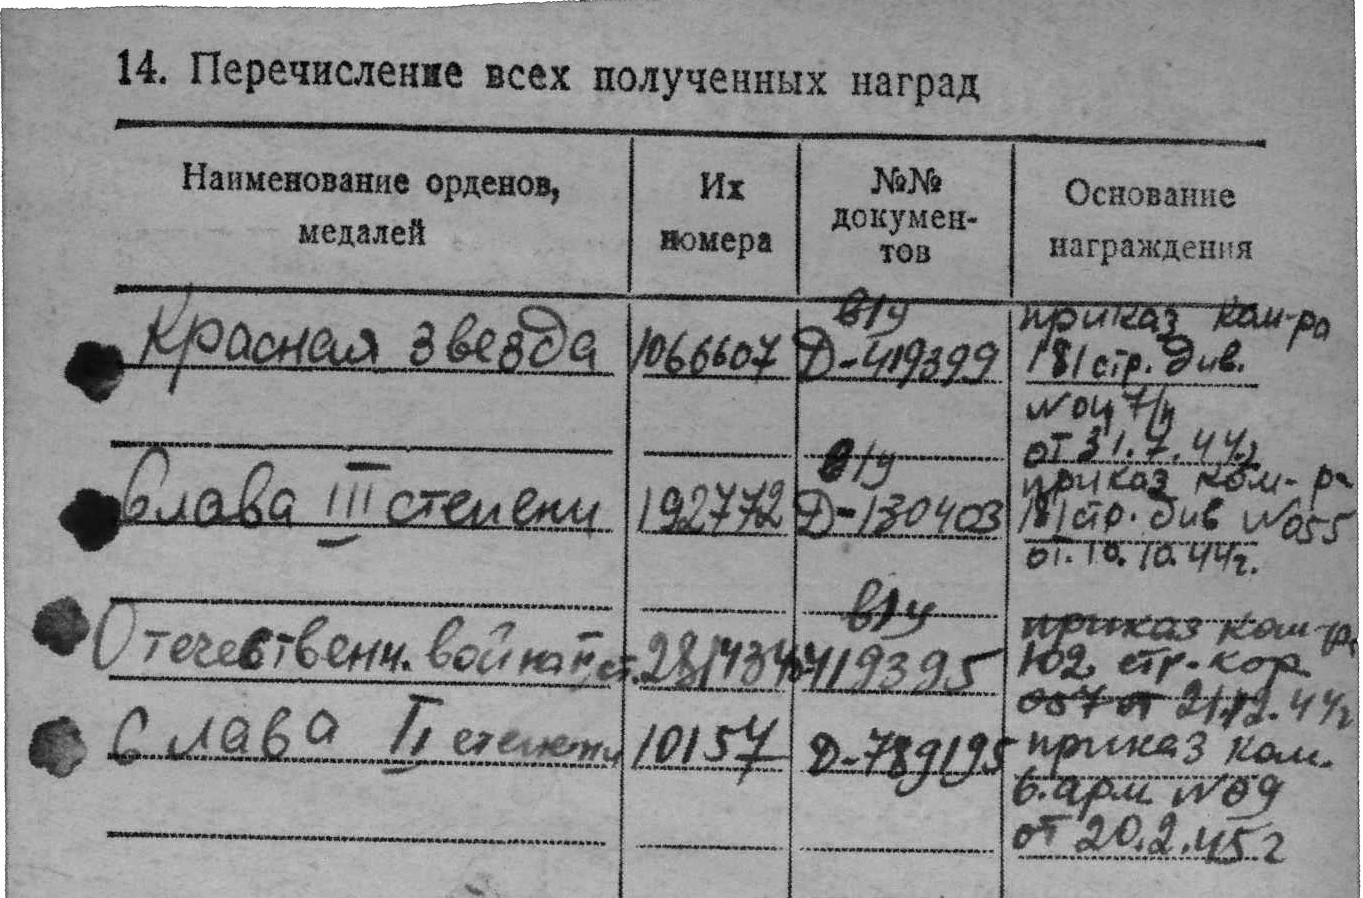 14. Перечисление всех полученных наград
Наименование орденов,
медалей
Их
номера
№№
докумен-
тов
Основание
награждения
Красная звезда
1066607
в/у
Д-419399
приказ ком-ра
181 стр. див.
от 31.7.44г.
Слава III степени
192772
в/у
Д-130403
приказ ком-ра
181 стр. див №055
от. 10.10.44г.
Отечественн. война II ст.
в/у
419395
приказ ком-ра
102 стр. кор.
057 от 21.12.44г
Слава II степени
10157
Д-789195
приказ ком.
6.арм №09
от 20.2.45г